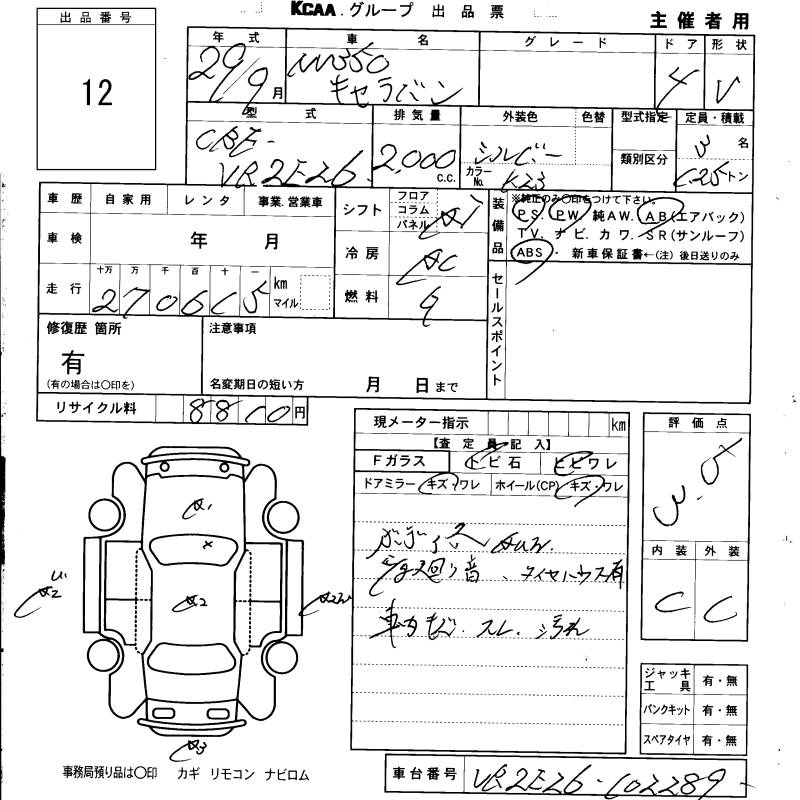 KCAA.グループ 出品票
主催者用
出品番号
12
年式 車名 グレード ドア 形状
29/9月 NV350 キャラバン 4 V
型式 排気量 外装色 色替 型式指定 定員・積載
CBF-VR2E26 2,000c.c. シルバー 3名
カラーNo. K23 類別区分 1.25トン
車歴 自家用 レンタ 事業.営業車
シフト フロア コラム パネル AT
装備品 ※純正のみ〇印をつけて下さい。
PS. PW 純AW. AB(エアバック)
TV. ナビ. カワ. SR(サンルーフ)
ABS・新車保証書←(注) 後日送りのみ
車検 年 月
冷房 AC
走行 十万 万 千 百 十 一 km マイル
270615
燃料 G
セールスポイント
修復歴 箇所
有
(有の場合は〇印を)
注意事項
名変期日の短い方 月 日まで
リサイクル料 8810円
現メーター指示 km
【査定員記入】
Fガラス トビ石 ヒビワレ
ドアミラー キズ・ワレ ホイール(CP) キズ・ワレ
音、タイヤハウス有
車内 スレ. 汚れ
評価点
3.0
内装 外装
C C
A1
X
A2
A2
A3
ジャッキ工具 有・無
パンクキット 有・無
スペアタイヤ 有・無
事務局預り品は〇印 カギ リモコン ナビロム
車台番号 VR2E26-102289